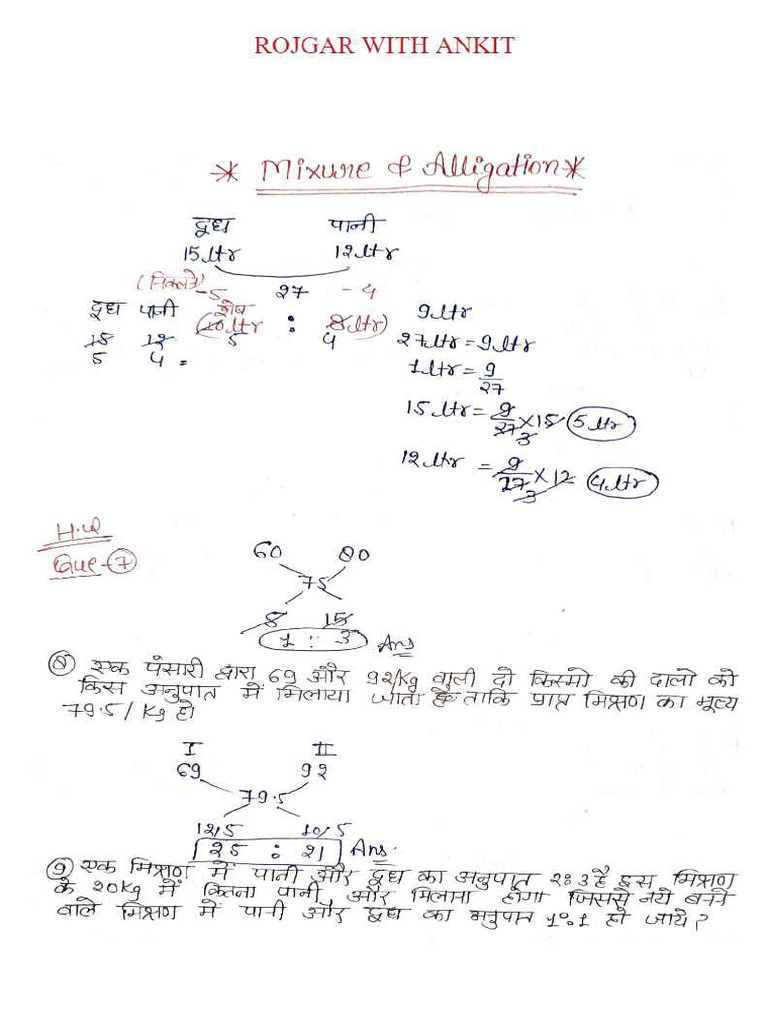 ROJGAR WITH ANKIT
* Mixure & Alligation *
दूध पानी
15ltr 12ltr
(निकले) -5 27 -4
दूध पानी शेष
(10ltr : 8ltr)
15 12 5 4
5 4 =
9ltr
27ltr = 9ltr
1ltr = 9/27
15ltr = 9/27 × 15 5ltr
3
12ltr = 9/27 × 12 4ltr
3
H.W
Que-7
60 80
75
5 15
1 : 3 Ans
8 एक पंसारी द्वारा 69 और 92/kg वाली दो किस्मो की दालो को
किस अनुपात में मिलाया जाता है ताकि प्राप्त मिश्रण का मूल्य
79.5/Kg हो
I II
69 92
79.5
12.5 10.5
25 : 21 Ans.
9 एक मिश्रण में पानी और दूध का अनुपात 2:3 है इस मिश्रण
के 20kg में कितना पानी और मिलाना होगा जिससे नये बनने
वाले मिश्रण में पानी और दूध का अनुपात 1:1 हो जाये?